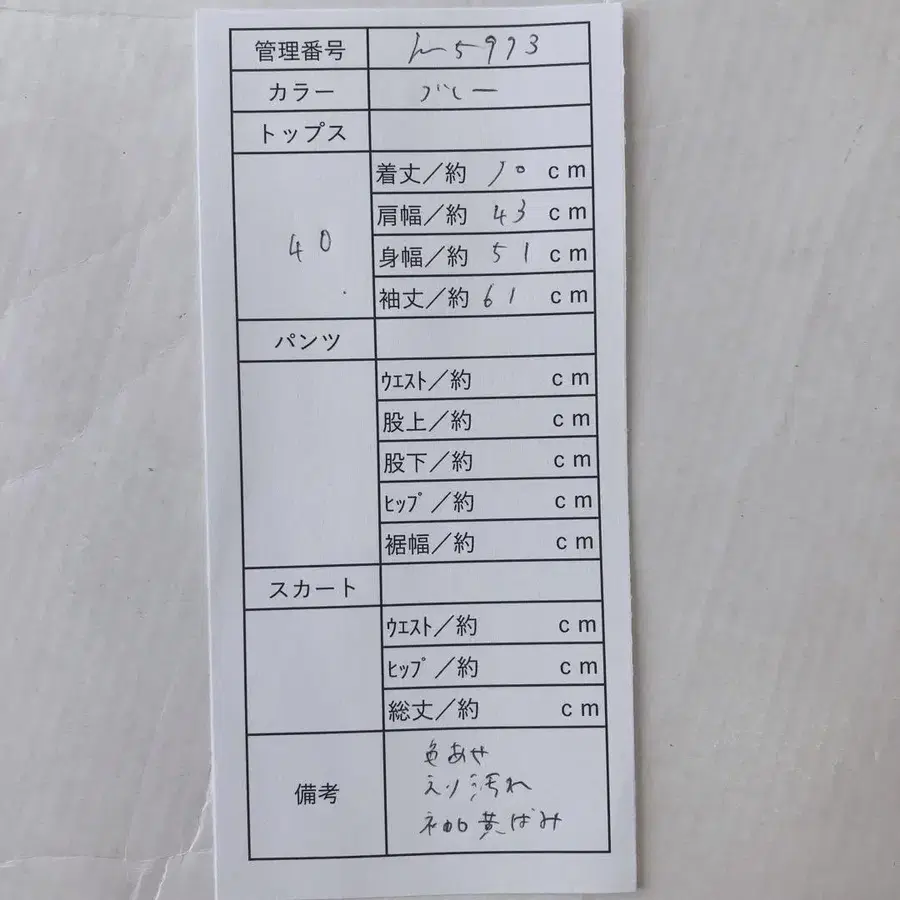 管理番号 h5973
カラー グレー
トップス
40
着丈/約 70 cm
肩幅/約 43 cm
身幅/約 51 cm
袖丈/約 61 cm
パンツ
ウエスト/約 cm
股上/約 cm
股下/約 cm
ヒップ/約 cm
裾幅/約 cm
スカート
ウエスト/約 cm
ヒップ/約 cm
総丈/約 cm
備考
色あせ
えり汚れ
袖口黄ばみ